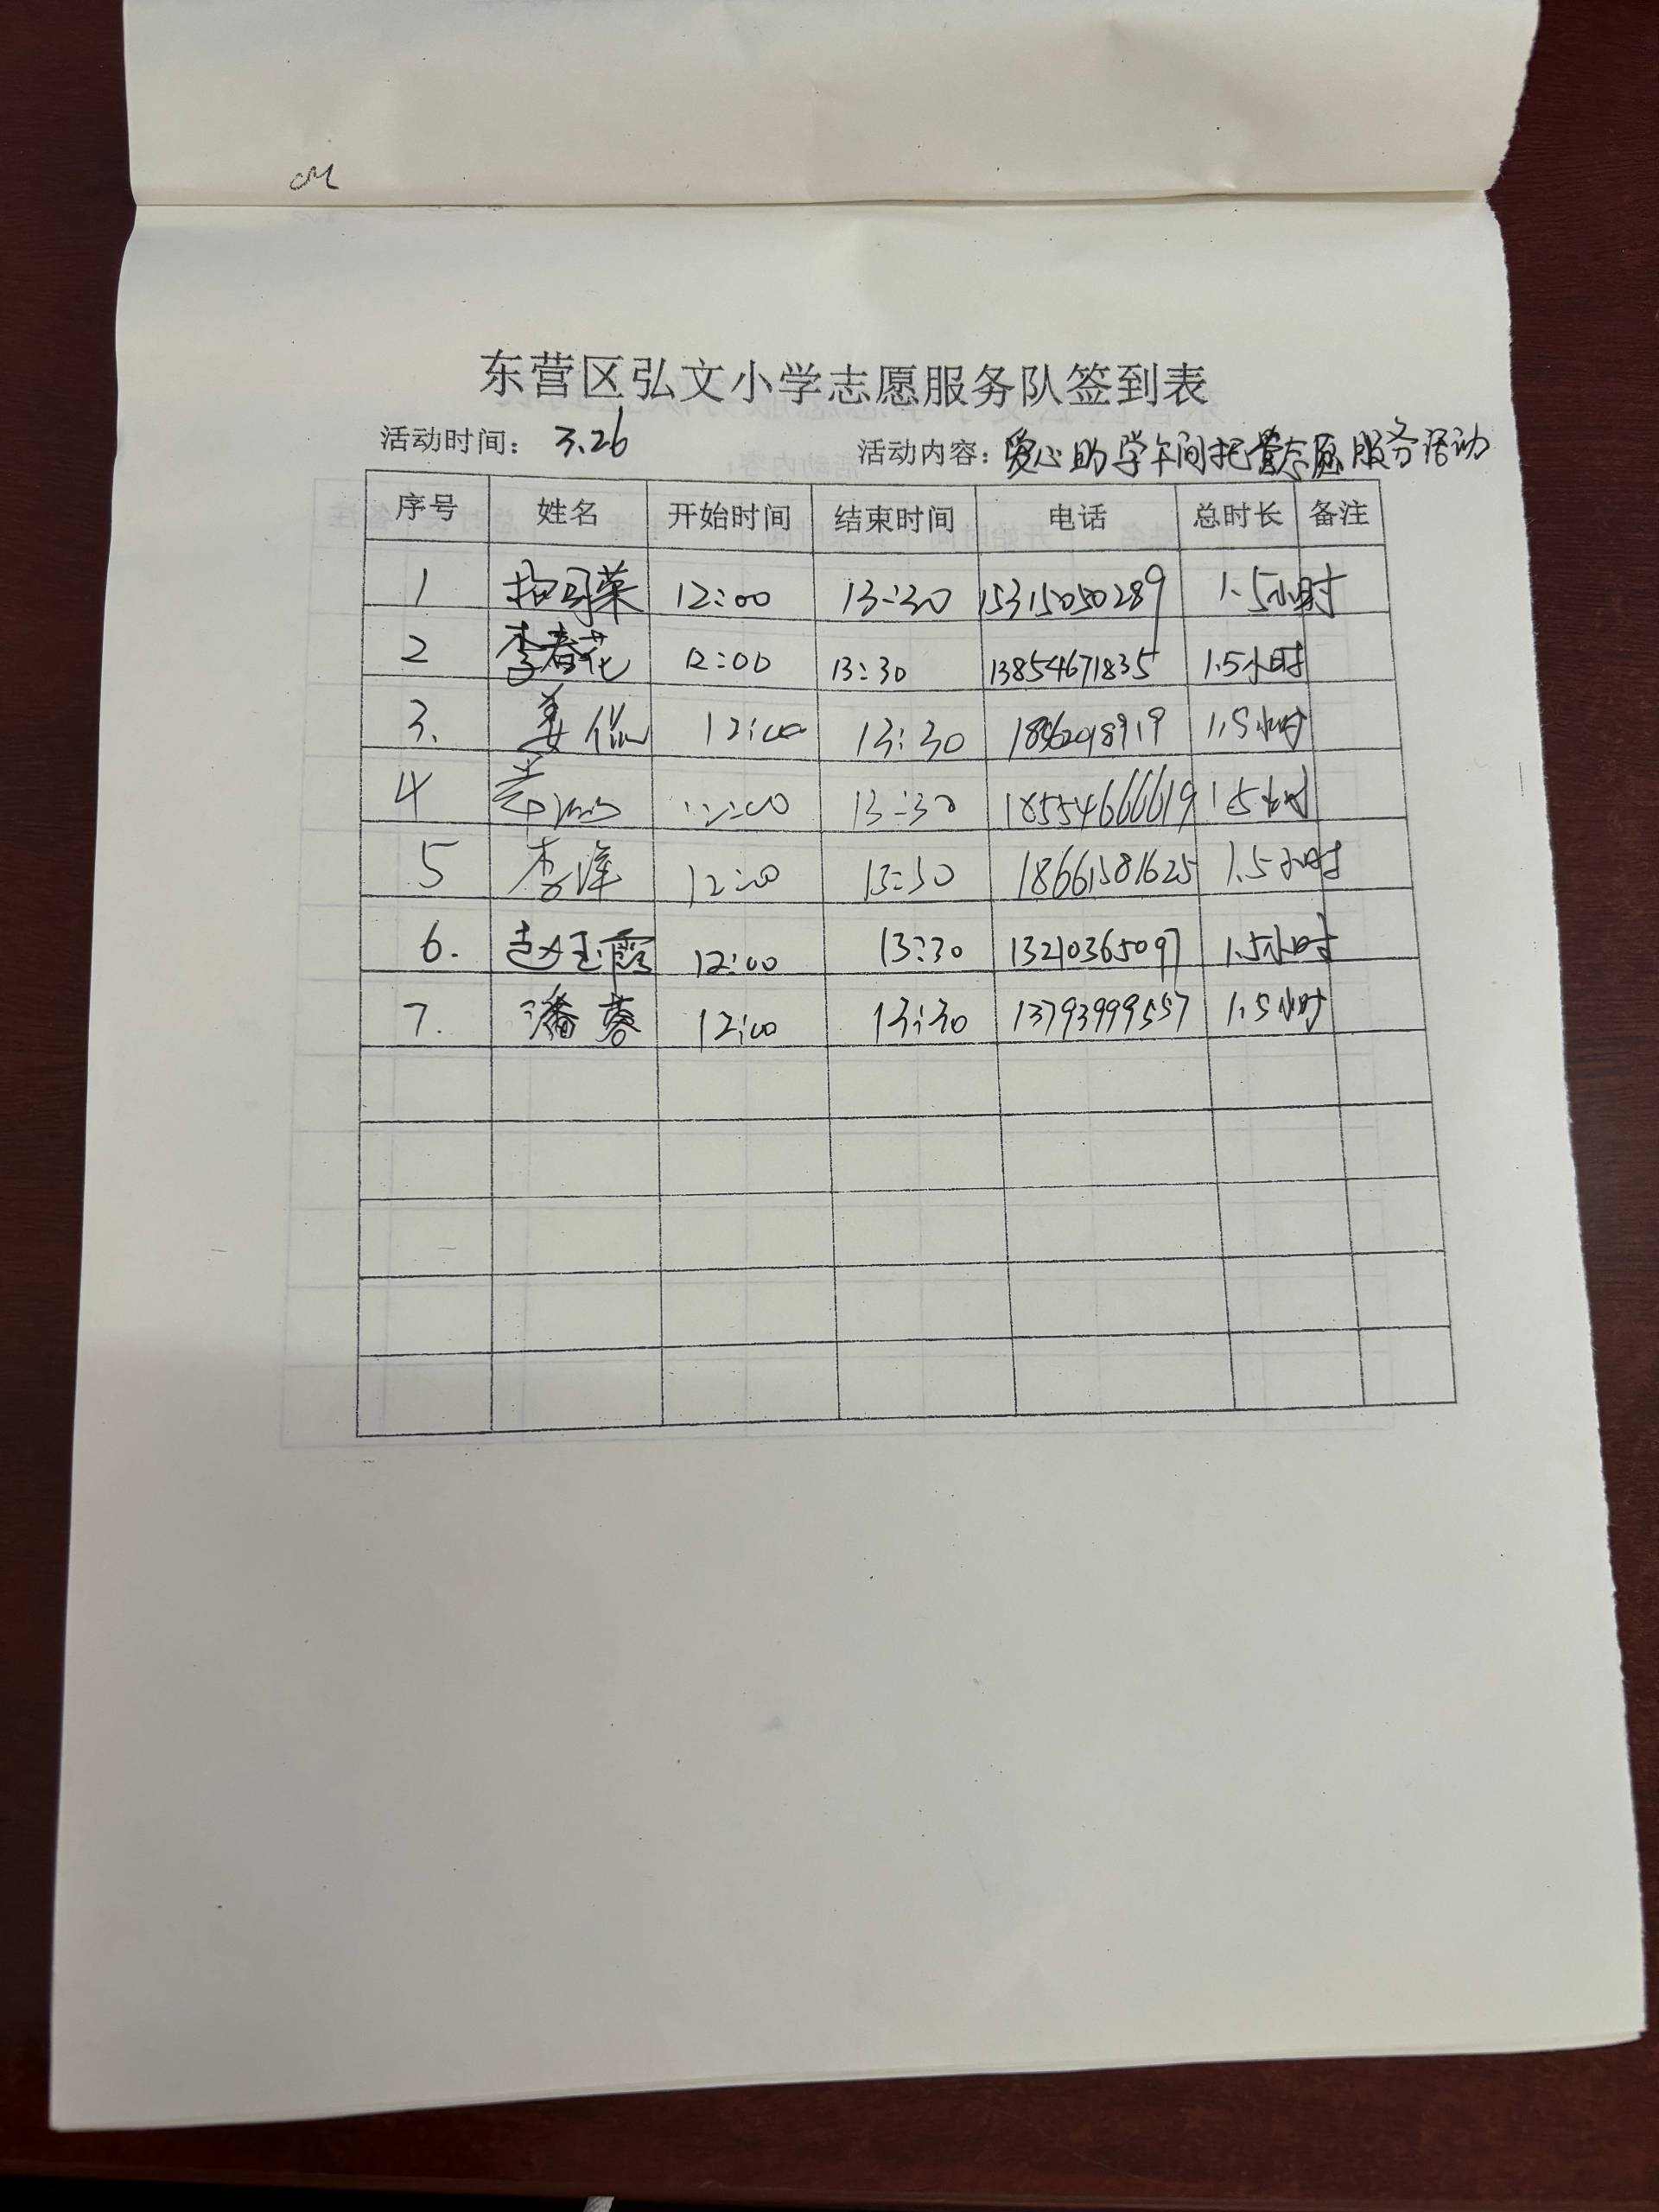 东营区弘文小学志愿服务队签到表
活动时间: 3.26 活动内容: 爱心助学午间托管志愿服务活动
序号 姓名 开始时间 结束时间 电话 总时长 备注
1 12:00 13:30 15315050289 1.5小时
2 李春花 12:00 13:30 13854671835 1.5小时
3. 姜 12:00 13:30 1.5小时
4 12:00 13:30 18554666619 1.5小时
5 李萍 12:00 13:30 18661581625 1.5小时
6. 赵玉霞 12:00 13:30 13210365097 1.5小时
7. 潘蓉 12:00 13:30 13793999557 1.5小时